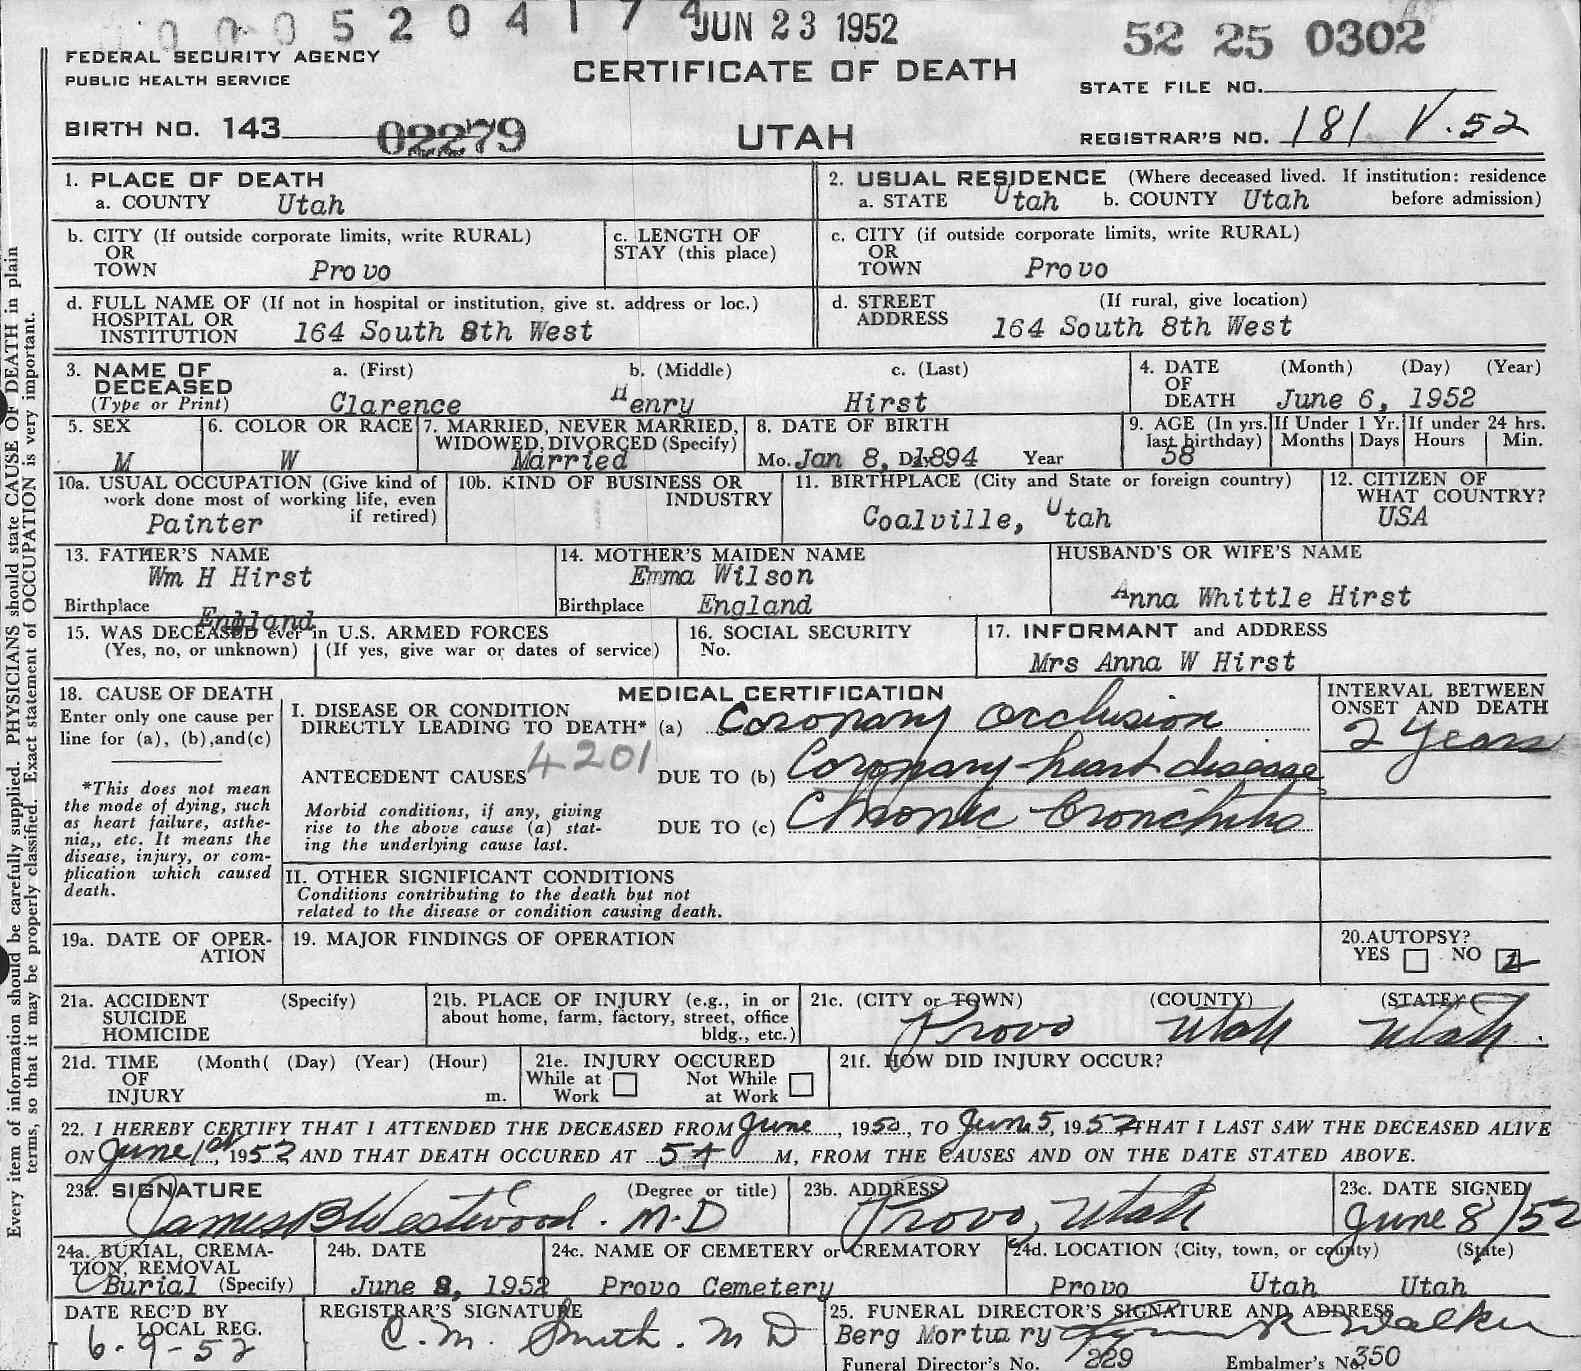 0 0 0 5 2 0 4 1 7 4 JUN 23 1952 52 25 0302
FEDERAL SECURITY AGENCY
PUBLIC HEALTH SERVICE
CERTIFICATE OF DEATH
STATE FILE NO.
BIRTH NO. 143 02279 UTAH REGISTRAR'S NO. 181 V.52
1. PLACE OF DEATH
a. COUNTY Utah
2. USUAL RESIDENCE (Where deceased lived. If institution: residence
a. STATE Utah b. COUNTY Utah before admission)
b. CITY (If outside corporate limits, write RURAL)
OR
TOWN Provo
c. LENGTH OF
STAY (this place)
c. CITY (if outside corporate limits, write RURAL)
OR
TOWN Provo
d. FULL NAME OF (If not in hospital or institution, give st. address or loc.)
HOSPITAL OR
INSTITUTION 164 South 8th West
d. STREET (If rural, give location)
ADDRESS 164 South 8th West
3. NAME OF a. (First) b. (Middle) c. (Last)
DECEASED
(Type or Print) Clarence Henry Hirst
4. DATE (Month) (Day) (Year)
OF
DEATH June 6, 1952
5. SEX
M
6. COLOR OR RACE
W
7. MARRIED, NEVER MARRIED,
WIDOWED, DIVORCED (Specify)
Married
8. DATE OF BIRTH
Mo. Jan 8, Day 1894 Year
9. AGE (In yrs.
last birthday)
58
If Under 1 Yr.
Months Days
If under 24 hrs.
Hours Min.
10a. USUAL OCCUPATION (Give kind of
work done most of working life, even
if retired)
Painter
10b. KIND OF BUSINESS OR
INDUSTRY
11. BIRTHPLACE (City and State or foreign country)
Coalville, Utah
12. CITIZEN OF
WHAT COUNTRY?
USA
13. FATHER'S NAME
Wm H Hirst
Birthplace England
14. MOTHER'S MAIDEN NAME
Emma Wilson
Birthplace England
HUSBAND'S OR WIFE'S NAME
Anna Whittle Hirst
15. WAS DECEASED ever in U.S. ARMED FORCES
(Yes, no, or unknown) (If yes, give war or dates of service)
16. SOCIAL SECURITY
No.
17. INFORMANT and ADDRESS
Mrs Anna W Hirst
18. CAUSE OF DEATH
Enter only one cause per
line for (a), (b),and(c)
*This does not mean
the mode of dying, such
as heart failure, asthe-
nia,, etc. It means the
disease, injury, or com-
plication which caused
death.
MEDICAL CERTIFICATION
I. DISEASE OR CONDITION
DIRECTLY LEADING TO DEATH* (a) Coronary Occlusion
ANTECEDENT CAUSES 4201 DUE TO (b) Coronary heart disease
Morbid conditions, if any, giving
rise to the above cause (a) stat-
ing the underlying cause last.
DUE TO (c) Chronic bronchitis
INTERVAL BETWEEN
ONSET AND DEATH
2 Years
II. OTHER SIGNIFICANT CONDITIONS
Conditions contributing to the death but not
related to the disease or condition causing death.
19a. DATE OF OPER-
ATION
19. MAJOR FINDINGS OF OPERATION
20.AUTOPSY?
YES NO
21a. ACCIDENT (Specify)
SUICIDE
HOMICIDE
21b. PLACE OF INJURY (e.g., in or
about home, farm, factory, street, office
bldg., etc.)
21c. (CITY or TOWN) (COUNTY) (STATE)
Provo Utah Utah.
21d. TIME (Month( (Day) (Year) (Hour)
OF
INJURY m.
21e. INJURY OCCURED
While at Not While
Work at Work
21f. HOW DID INJURY OCCUR?
22. I HEREBY CERTIFY THAT I ATTENDED THE DECEASED FROM June, 1950, TO June 5, 1952 THAT I LAST SAW THE DECEASED ALIVE
ON June 1st, 1952 AND THAT DEATH OCCURED AT 5 A M, FROM THE CAUSES AND ON THE DATE STATED ABOVE.
23a. SIGNATURE (Degree or title)
James B Westwood. M.D
23b. ADDRESS
Provo, Utah
23c. DATE SIGNED
June 8/52
24a. BURIAL, CREMA-
TION, REMOVAL
Burial (Specify)
24b. DATE
June 8, 1952
24c. NAME OF CEMETERY or CREMATORY
Provo Cemetery
24d. LOCATION (City, town, or county) (State)
Provo Utah Utah
DATE REC'D BY
LOCAL REG.
6-9-52
REGISTRAR'S SIGNATURE
C. M. Smith. M D
25. FUNERAL DIRECTOR'S SIGNATURE AND ADDRESS
Berg Mortuary Walker
Funeral Director's No. 229 Embalmer's No. 350
Every item of information should be carefully supplied. PHYSICIANS should state CAUSE OF DEATH in plain
terms, so that it may be properly classified. Exact statement of OCCUPATION is very important.